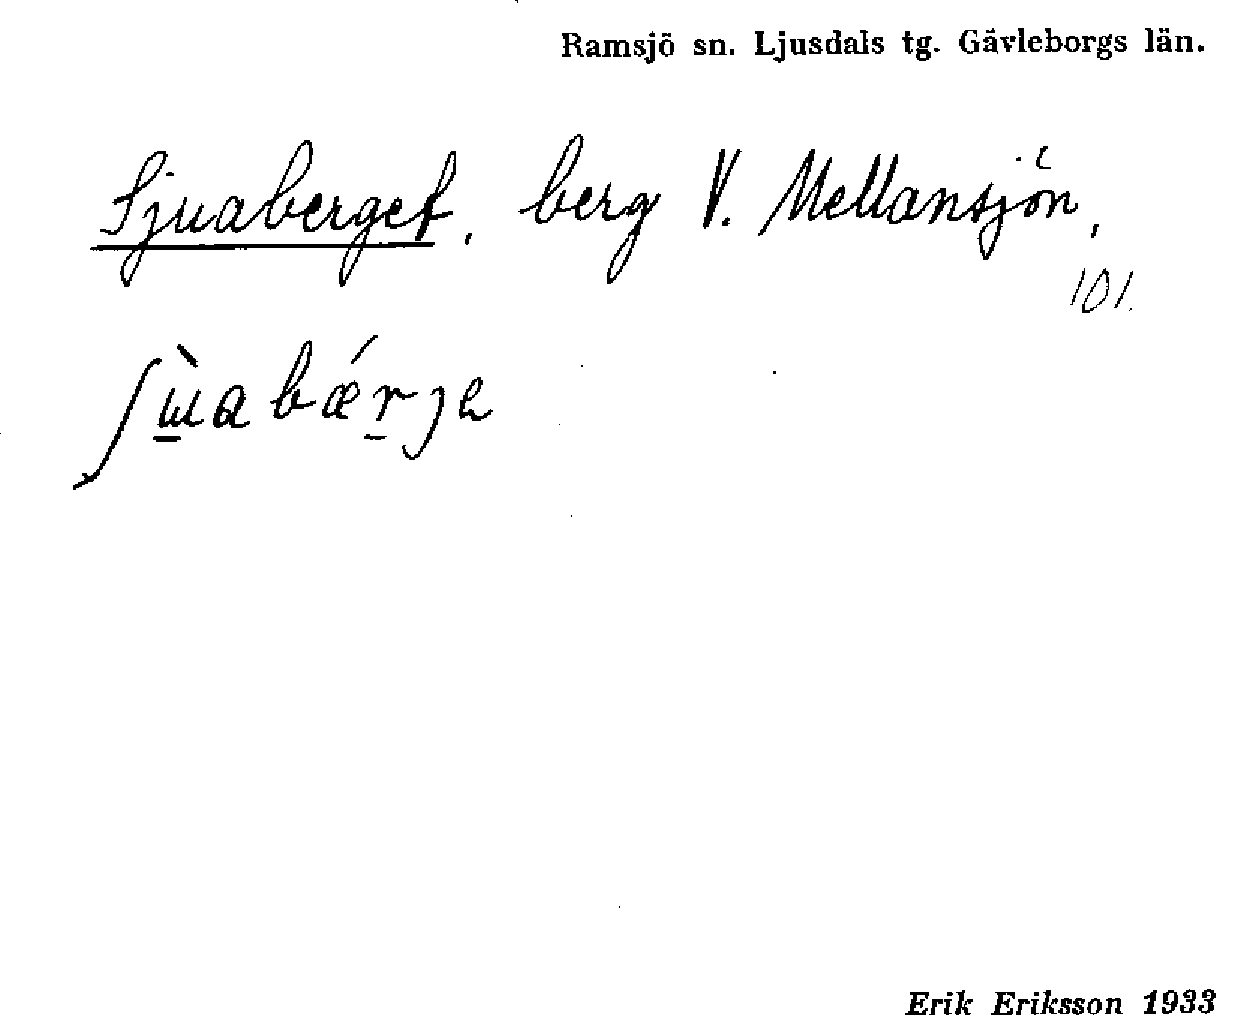 Ramsjö sn. Ljusdals tg. Gävleborgs län.
Sjuaberget, berg V. Mellansjön,
101.
ʃɯ̲̀abǽr̲ɟe
Erik Eriksson 1933